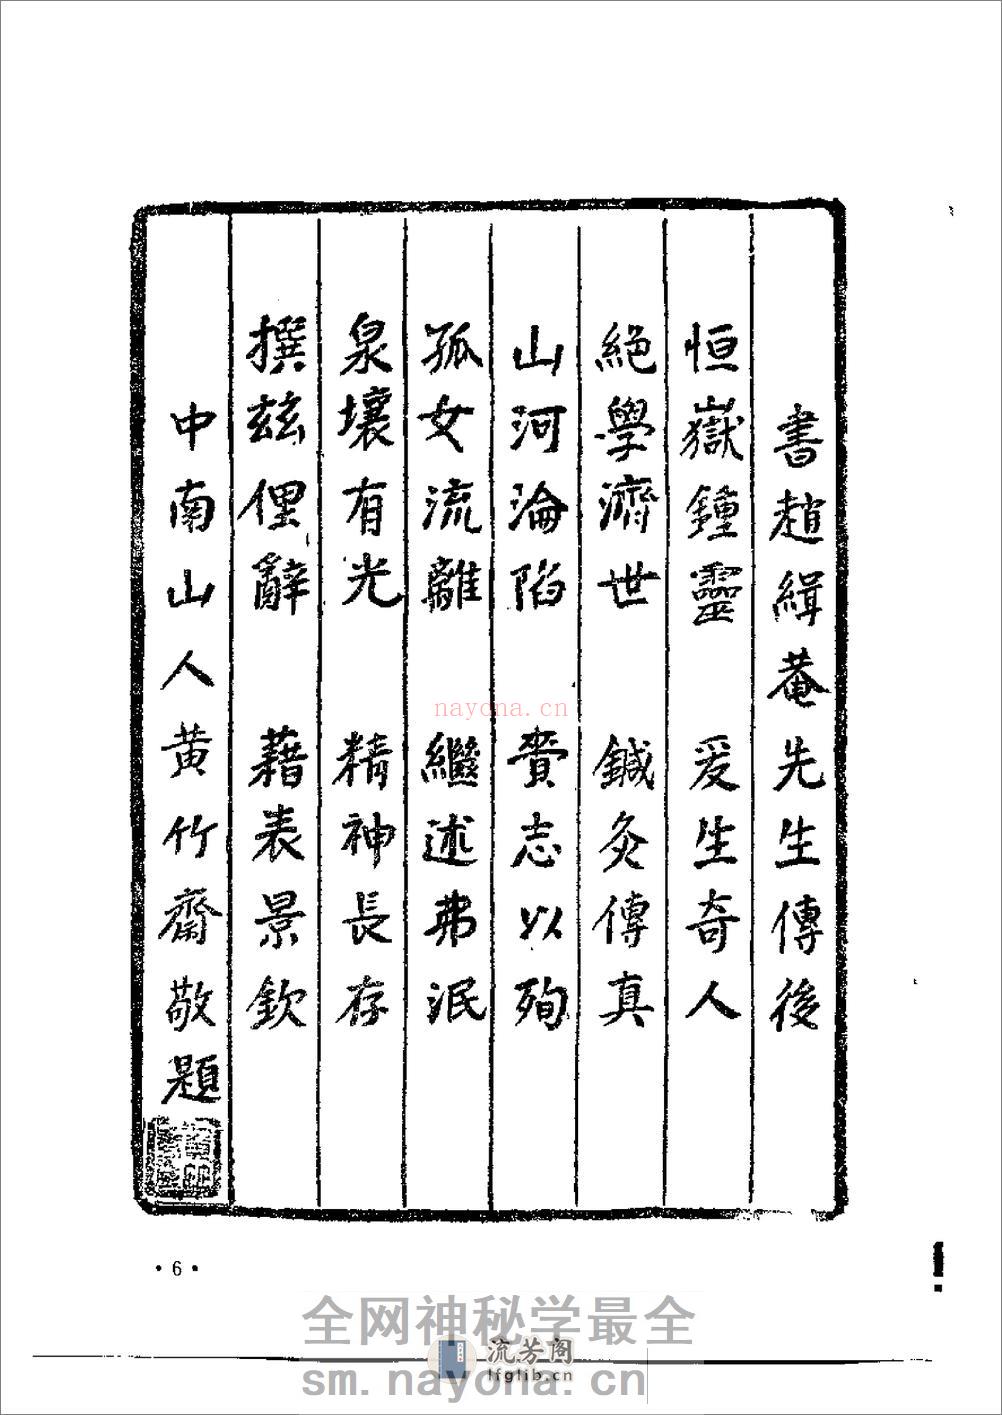 書趙緝菴先生傳後
恒嶽鍾靈 爰生奇人
絕學濟世 鍼灸傳真
山河淪陷 賫志以殉
孤女流離 繼述弗泯
泉壤有光 精神長存
撰茲俚辭 藉表景欽
中南山人黄竹齋敬題
·6·
nayona.cn
全网神秘学最全
流芳阁
lfglib.cn
sm.nayona.cn